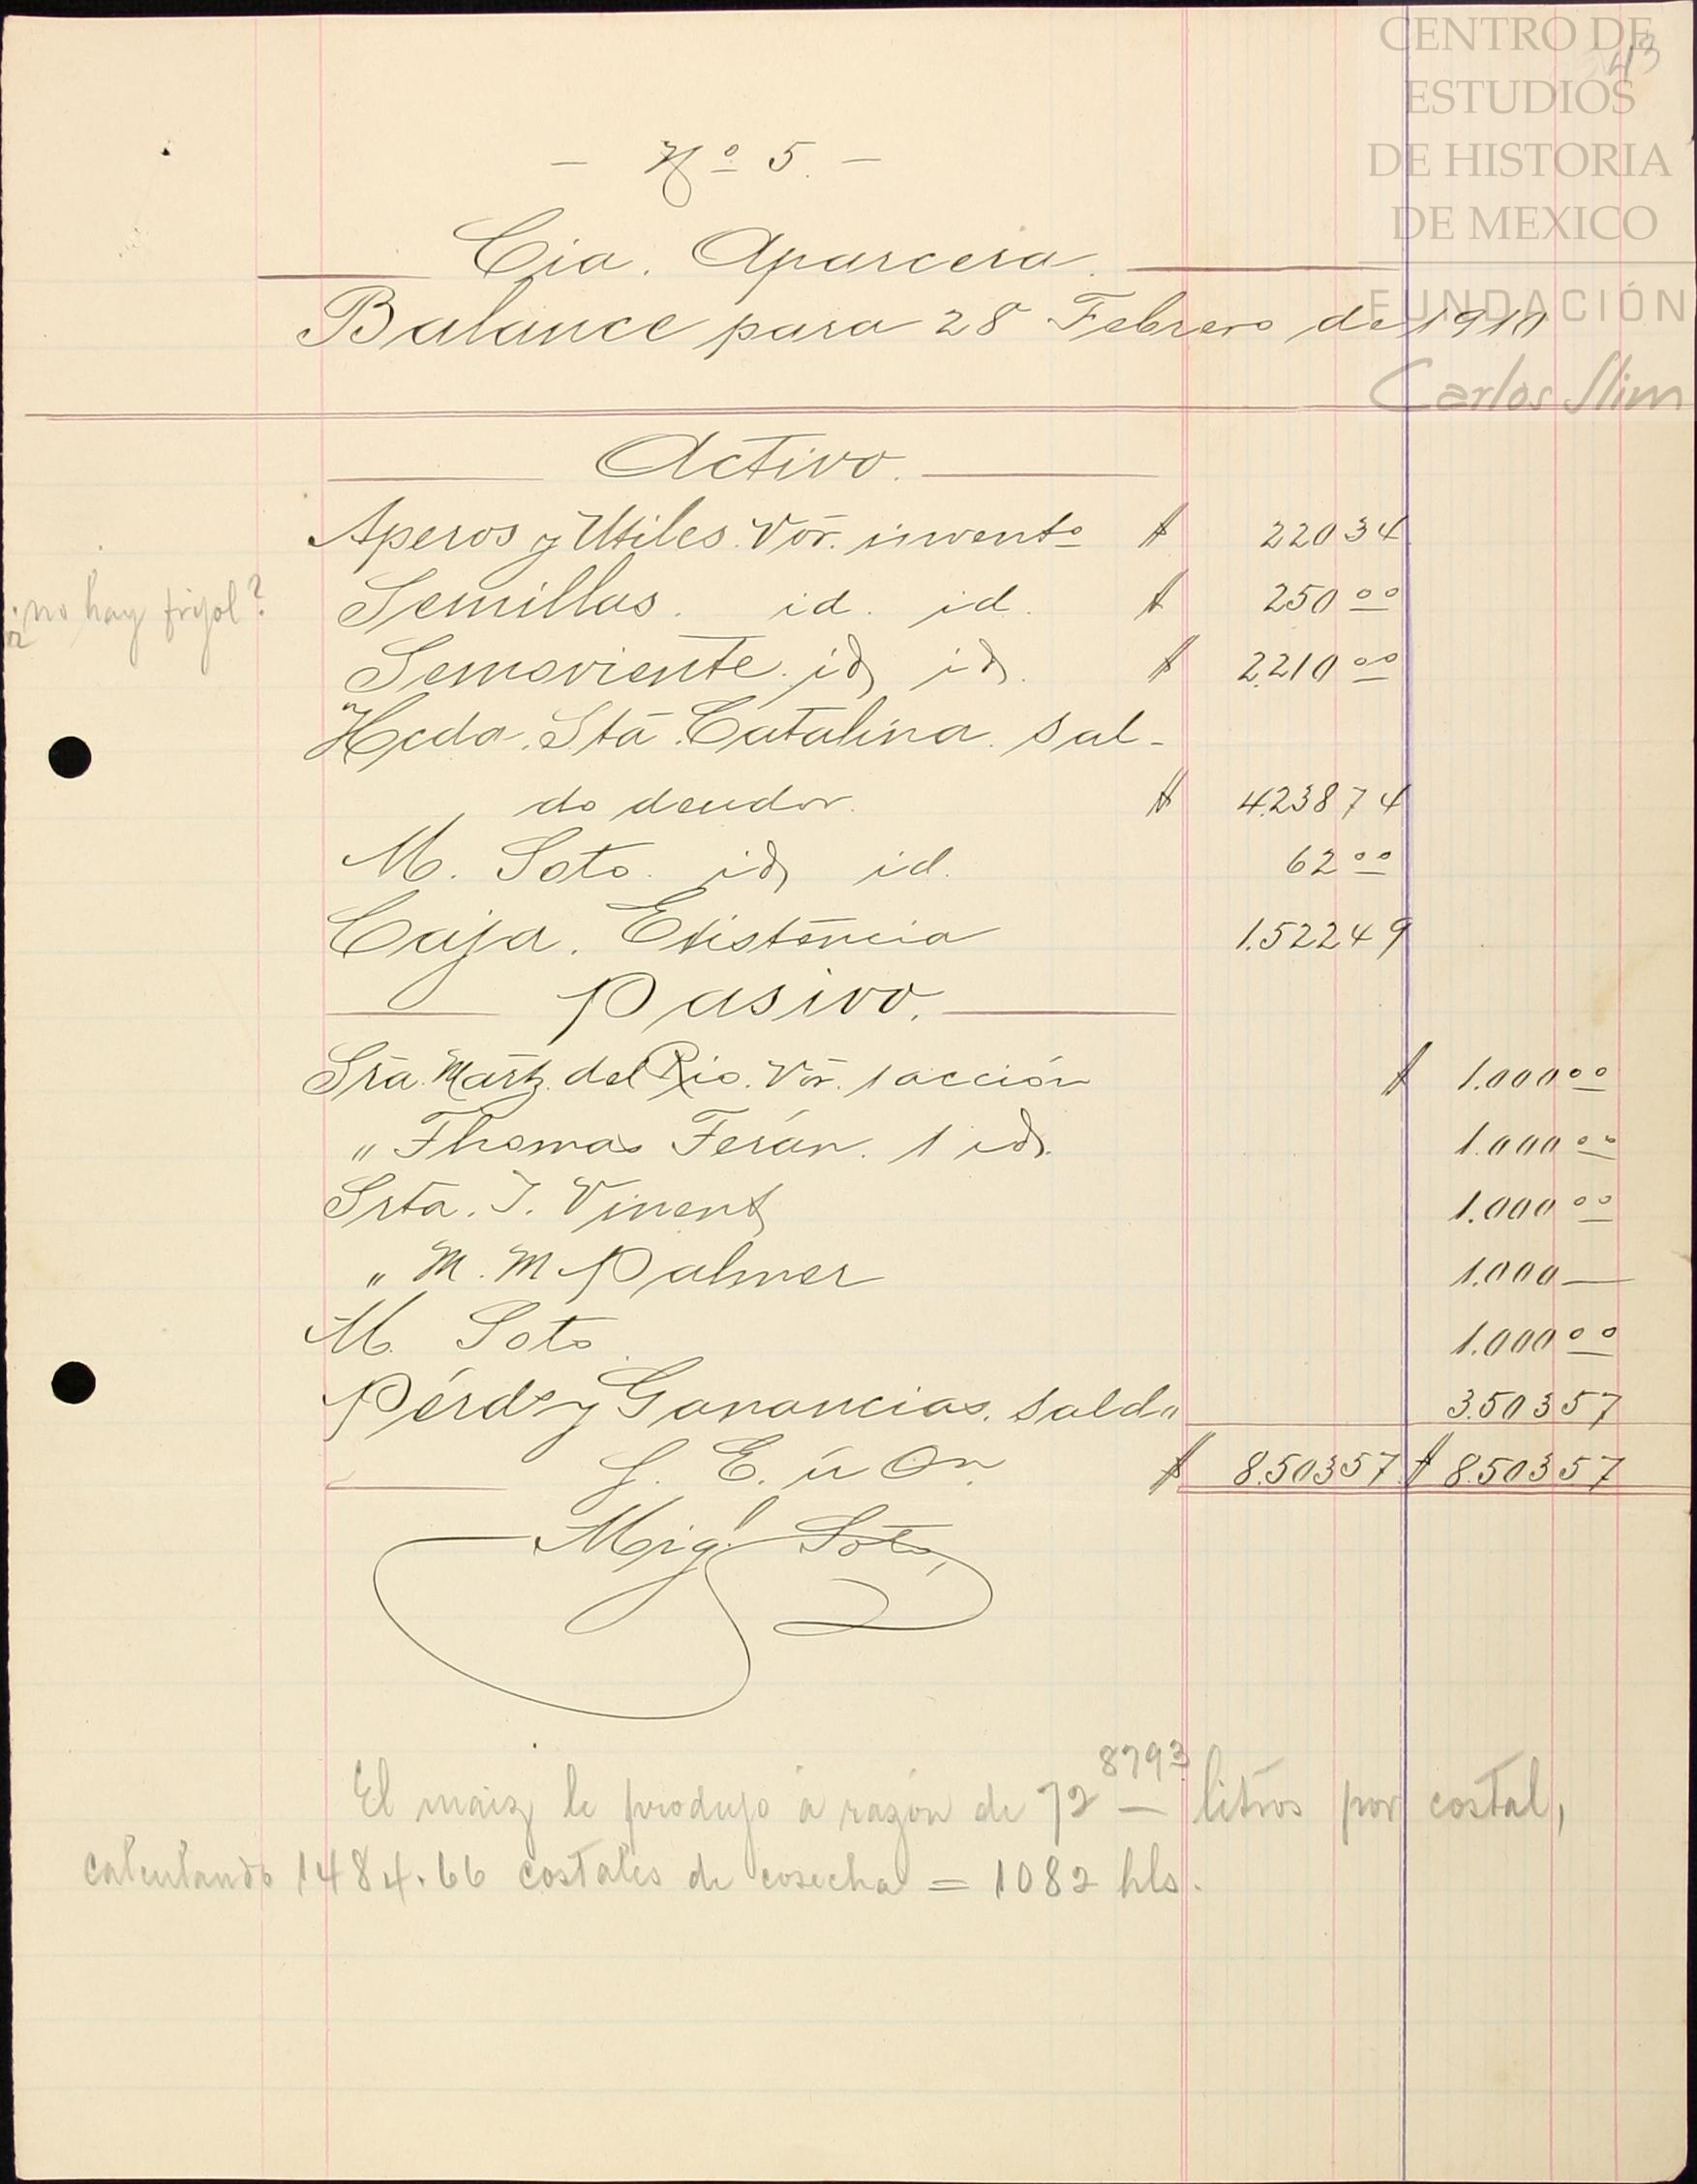 CENTRO DE
ESTUDIOS
DE HISTORIA
DE MEXICO
FUNDACIÓN
Carlos Slim
43
— Nº 5. —
Cia. Aparcera.
Balance para 28 Febrero de 1910
Activo.
Aperos y Utiles. Vor. inventº $ 220 34
¿no hay frijol?
Semillas. id. id. $ 250 00
Semoviente. id id. $ 2.210 00
Hcda. Sta. Catalina. sal-
do deudor. $ 4.238 74
M. Soto. id id. 62 00
Caja. Existencia 1.522 49
Pasivo.
Sra. Martz. del Rio. Vor. 1 acción $ 1.000 00
„ Thomas Terán. 1 id. 1.000 00
Srta. I. Vinent 1.000 00
„ M. M. Palmer 1.000 —
M. Soto. 1.000 00
Pérds y Ganancias. Saldo 3.503 57
S. E. ú On. $ 8.503 57 $ 8.503 57
Migl. Soto
El maiz le produjo á razón de 72 8793 litros por costal,
calculando 1484.66 costales de cosecha = 1082 hls.